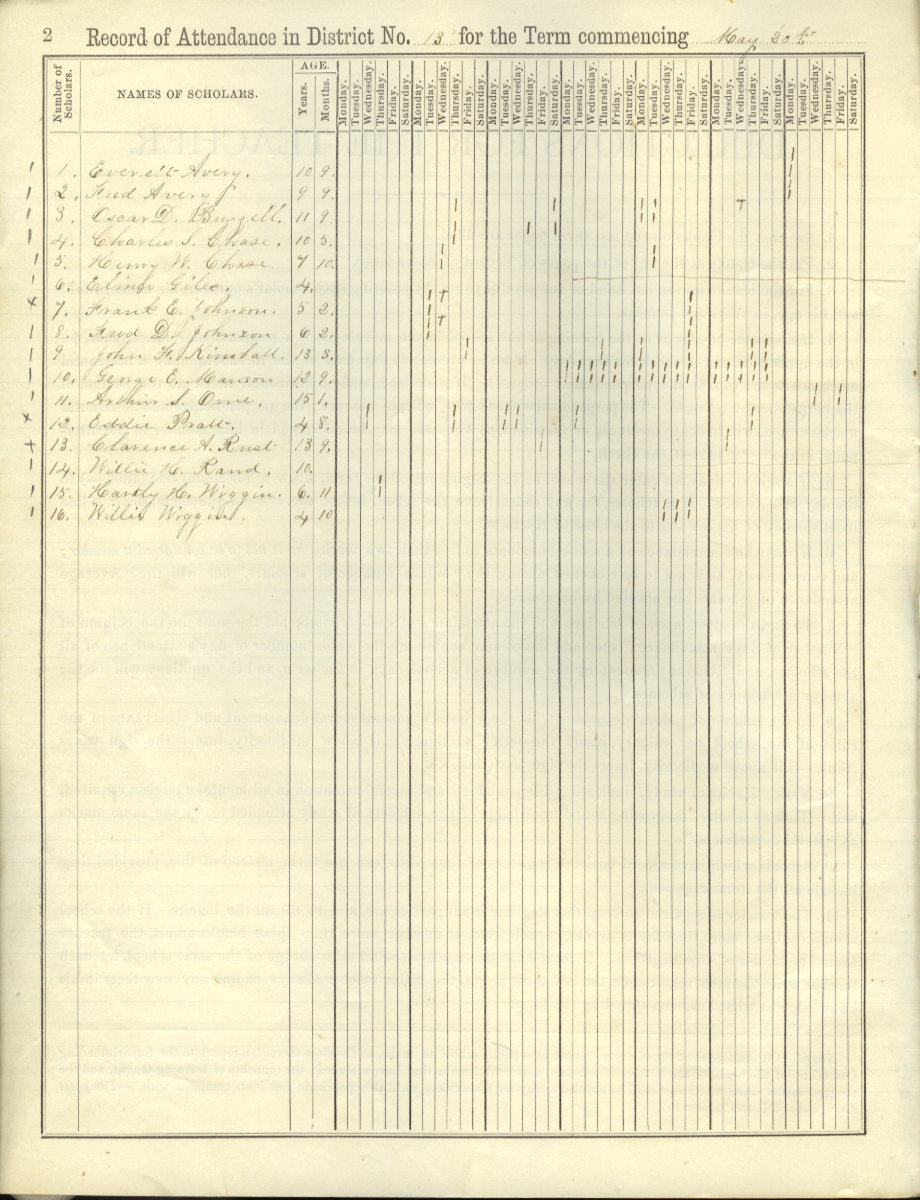 2 Record of Attendance in District No. 13 for the Term commencing May 20th
Number of Scholars. NAMES OF SCHOLARS. AGE. Years. Months. Monday. Tuesday. Wednesday. Thursday. Friday. Saturday. Monday. Tuesday. Wednesday. Thursday. Friday. Saturday. Monday. Tuesday. Wednesday. Thursday. Friday. Saturday. Monday. Tuesday. Wednesday. Thursday. Friday. Saturday. Monday. Tuesday. Wednesday. Thursday. Friday. Saturday. Monday. Tuesday. Wednesday. Thursday. Friday. Saturday. Monday. Tuesday. Wednesday. Thursday. Friday. Saturday.
1. Everett Avery. 10 9.
2. Fred Avery 9 9.
3. Oscar D. Buzzell. 11 9
4. Charles S. Chase. 10 5.
5. Henry W. Chase 7 10.
6. Giles. 4.
7. Frank E. Johnson. 5 2.
8. Fred D. Johnson 6 2.
9 John F. Kimball. 13 3.
10. George E. Manson 12 9.
11. Arthur S. Orne. 15 1.
12. Eddie Pratt. 4 8.
13. Clarence A. Rust 13 9.
14. Willie H. Rand. 10.
15. Hartly H. Wiggin. 6. 11
16. Willis Wiggin. 4 10